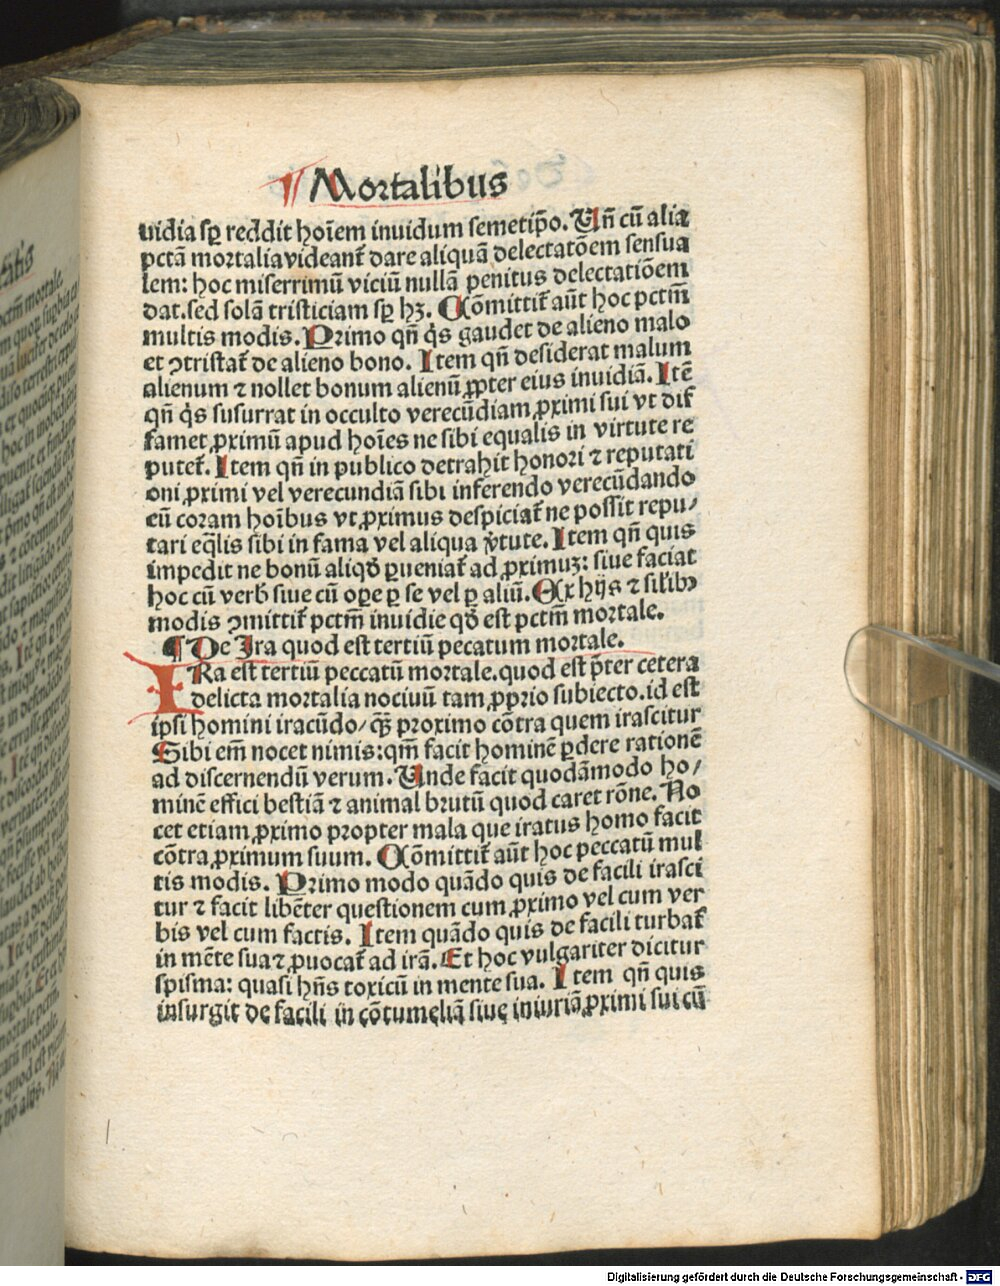 ¶ Mortalibus
uidia sꝑ reddit hoīem inuidum semetip̄o. Un̄ cū alia
pctā mortalia videant᷑ dare aliquā delectatōem sensua
lem: hoc miserrimū viciū nullā penitus delectatiōem
dat. sed solā tristiciam sꝑ hꝫ. Cōmittit᷑ aūt hoc pctm̄
multis modis. Primo qn̄ q̇s gaudet de alieno malo
et ꝯtristat᷑ de alieno bono. Item qn̄ desiderat malum
alienum ⁊ nollet bonum alienū ꝓpter eius inuidiā. Itē
qn̄ q̇s susurrat in occulto verecūdiam ꝓximi sui vt dif
famet ꝓximū apud hoīes ne sibi equalis in virtute re
putet᷑. Item qn̄ in publico detrahit honori ⁊ reputati
oni ꝓximi vel verecundiā sibi inferendo verecūdando
eū coram hoībus vt ꝓximus despiciat᷑ ne possit repu/
tari eq̄lis sibi in fama vel aliqua v̇tute. Item qn̄ quis
impedit ne bonū aliqd̄ ꝑueniat᷑ ad ꝓximuꝫ: siue faciat
hoc cū verb̄ siue cū oꝑe ꝑ se vel ꝑ aliū. Ex hijs ⁊ sil̄ibꝫ
modis ꝯmittit᷑ pctm̄ inuidie qd̄ est pctm̄ mortale.
¶ De Ira quod est tertiū pecatum mortale.
IRa est tertiū peccatū mortale. quod est p̄ter cetera
delicta mortalia nociuū tam ꝓprio subiecto. id est
ipsi homini iracūdo/ qꝫ̄ proximo cōtra quem irascitur
Sibi em̄ nocet nimis: qm̄ facit hominē ꝑdere rationē
ad discernendū verum. Unde facit quodāmodo ho/
minē effici bestiā ⁊ animal brutū quod caret rōne. No
cet etiam ꝓximo propter mala que iratus homo facit
cōtra ꝓximum suum. Cōmittit᷑ aūt hoc peccatū mul
tis modis. Primo modo quādo quis de facili irasci
tur ⁊ facit libēter questionem cum ꝓximo vel cum ver
bis vel cum factis. Item quādo quis de facili turbat᷑
in mēte sua ⁊ ꝓuocat᷑ ad irā. Et hoc vulgariter dicitur
spisma: quasi hn̄s toxicū in mente sua. Item qn̄ quis
insurgit de facili in cōtumeliā siue iniuriā ꝓximi sui cū
Digitalisierung gefördert durch die Deutsche Forschungsgemeinschaft - DFG